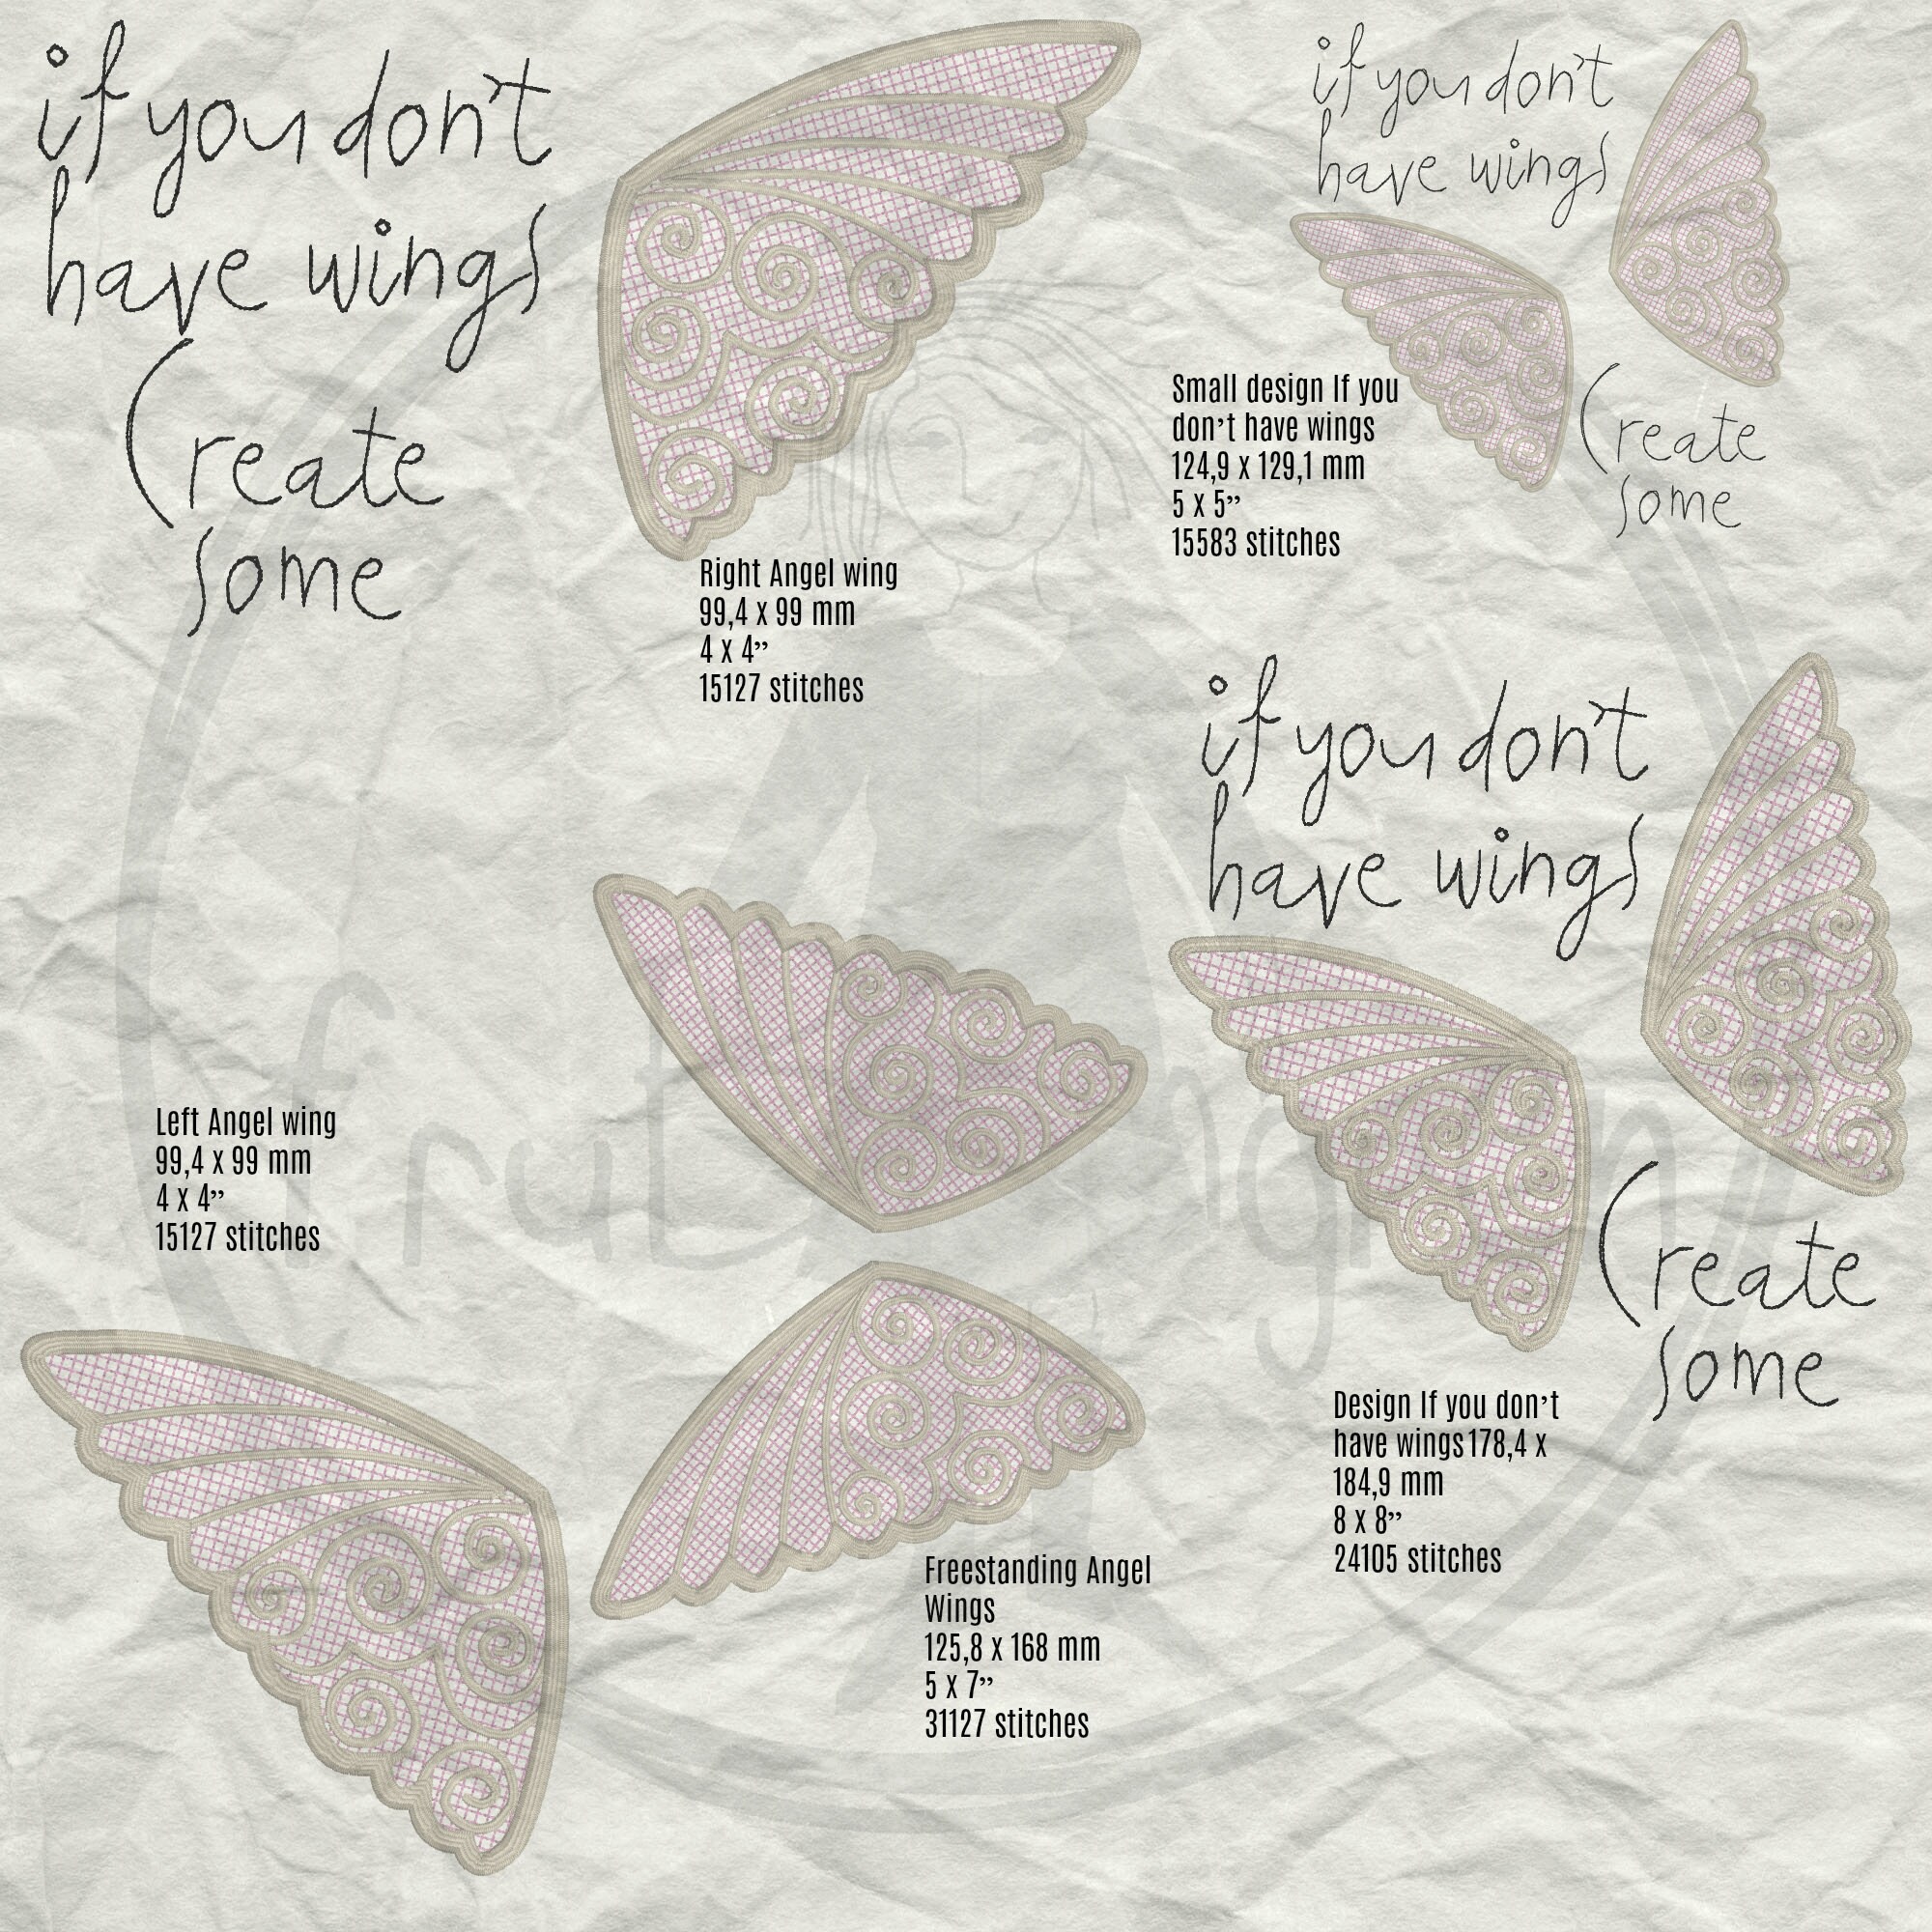 if you don't
have wings
Create
some
Right Angel wing
99,4 x 99 mm
4 x 4”
15127 stitches
if you don't
have wings
Create
some
Small design If you
don’t have wings
124,9 x 129,1 mm
5 x 5”
15583 stitches
if you don't
have wings
Create
some
Left Angel wing
99,4 x 99 mm
4 x 4”
15127 stitches
Design If you don’t
have wings 178,4 x
184,9 mm
8 x 8”
24105 stitches
Freestanding Angel
Wings
125,8 x 168 mm
5 x 7”
31127 stitches